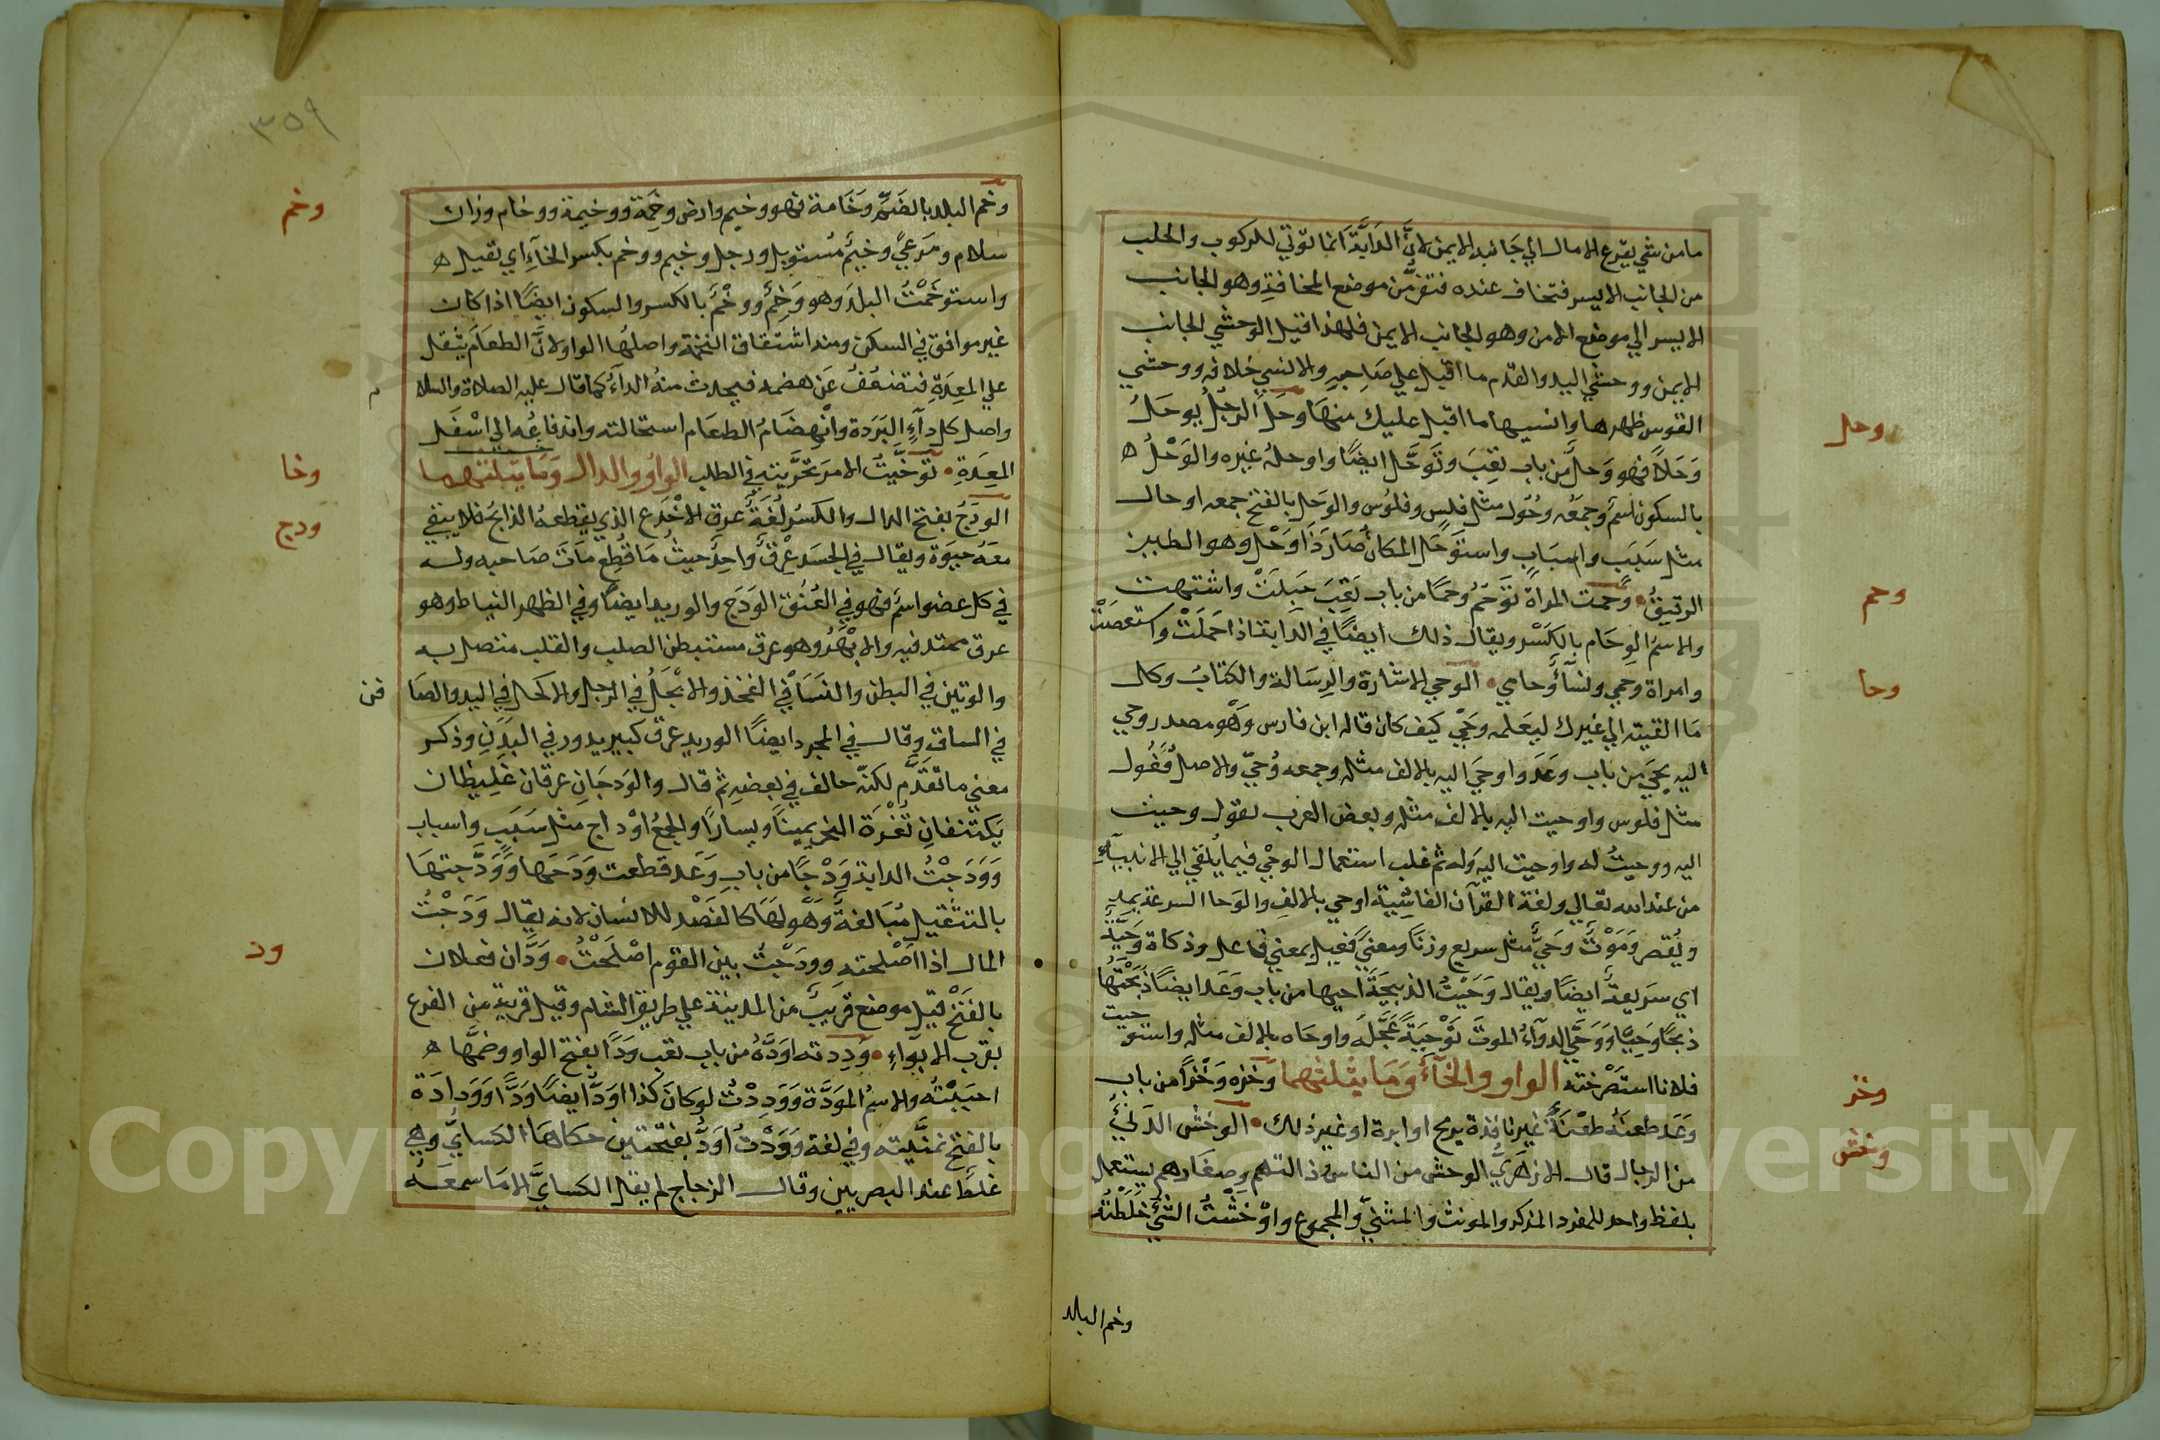 ما من شي يفزع الا مال الي جانبه الايمن لان الدابة انما توتي للركوب والحلب
من الجانب الايسر فتخاف عنده فتفر من موضع المخافة وهو الجانب
الايسر الي موضع الامن وهو الجانب الايمن فلهذا قيل الوحشي الجانب
الايمن ووحشي اليد والقدم ما اقبل علي صاحبه والانسي خلافه ووحشي
القوس ظهرها وانسيها ما اقبل عليك منها وحل الرجل يوحل
وحلا فهو وحل من باب تعب وتوحل ايضا واوحله غيره والوحل ه
بالسكون اسم وجمعه وحول مثل فلس وفلوس والوحل بالفتح جمعه اوحال
مثل سبب واسباب واستوحل المكان صار ذا وحل وهو الطين
الرقيق • وحمت المراة توحم وحما من باب تعب حبلت واشتهت
والاسم الوحام بالكسر ويقال ذلك ايضا في الدابة اذا حملت واستعصت
وامراة وحمي ونساء وحامي • الوحي الاشارة والرسالة والكتاب وكل
ما القيته الي غيرك ليعلمه وحي كيف كان قاله ابن فارس وهو مصدر وحي
اليه يحي من باب وعد واوحي اليه بالالف مثله وجمعه وحي والاصل فعول
مثل فلوس واوحيت اليه بالالف مثله وبعض العرب يقول وحيت
اليه ووحيت له واوحيت اليه وله ثم غلب استعمال الوحي فيما يلقي الي الانبياء
من عند الله تعالي ولغة القرآن الفاشية اوحي بالالف والوحا السرعة يمد
ويقصر وموت وحي مثل سريع وزنا ومعني فعيل بمعني فاعل وذكاة وحية
اي سريعة ايضا ويقال وحيت الذبيحة احيها من باب وعد ايضا ذبحتها
ذبحا وحيا ووحي الدواء الموت توحية عجله واوحاه بالالف مثله واستوحيت
فلانا استصرخته الواو والخاء وما يثلثهما وخزه وخزا من باب
وعد طعنه طعنة غير نافذة برمح او ابرة او غير ذلك • الوخش الدني
من الرجال قال الازهري الوخش من الناس رذالتهم وصغارهم يستعمل
بلفظ واحد للمفرد المذكر والمونث والمثني والمجموع واوخشت الشي خلطته
وخم البلد
وحل
وحم
وحا
وخز
وخش
٣٥٩
وخم البلد بالضم وخامة فهو وخيم وارض وخمة ووخيمة ووخام وزان
سلام ومرعي وخيم مستوبل ورجل وخيم ووخم بكسر الخاء اي ثقيل ه
واستوخمت البلد وهو وخم ووخم بالكسر والسكون ايضا اذا كان
غير موافق في السكن ومنه اشتقاق التخمة واصلها الواو لان الطعام يثقل
علي المعدة فتضعف عن هضمه فيحدث منه الداء كما قال عليه الصلاة والسلام
واصل كل داء البردة وانهضام الطعام استحالته واندفاعه الي اسفل
المعدة • توخيت الامر تحريته في الطلب الواو والدال وما يثلثهما
الودج بفتح الدال والكسر لغة عرق الاخدع الذي يقطعه الذابح فلا يبقي
معه حيوة ويقال في الجسد عرق واحد حيث ما قطع مات صاحبه وله
في كل عضو اسم فهو في العنق الودج والوريد ايضا وفي الظهر النياط وهو
عرق ممتد فيه والابهر وهو عرق مستبطن الصلب والقلب متصل به
والوتين في البطن والنسا في الفخذ والابجل في الرجل والاكحل في اليد والصافن
في الساق وقال في المجرد ايضا الوريد عرق كبير يدور في البدن وذكر
معني ما تقدم لكنه خالف في بعضه ثم قال والودجان عرقان غليظان
يكتنفان ثغرة النحر يمينا ويسارا والجمع اوداج مثل سبب واسباب
وودجت الدابة ودجا من باب وعد قطعت ودجها وودجتها
بالتثقيل مبالغة وهو لها كالفصد للانسان لانه يقال ودجت
المال اذا اصلحته وودجت بين القوم اصلحت • ودان فعلان
بالفتح قيل موضع قريب من المدينة علي طريق الشام وقيل قرية من الفرع
بقرب الابواء • وددته اوده من باب تعب ودا بفتح الواو وضمها ه
احببته والاسم المودة ووددت لو كان كذا اود ايضا ودا وودادة
بالفتح تمنيته وفي لغة وددت اود بفتحتين حكاها الكسائي وهي
غلط عند البصريين وقال الزجاج لم يقل الكسائي الا ما سمعه
وخم
وخا
ودج
ود
Copyright © King Saud University